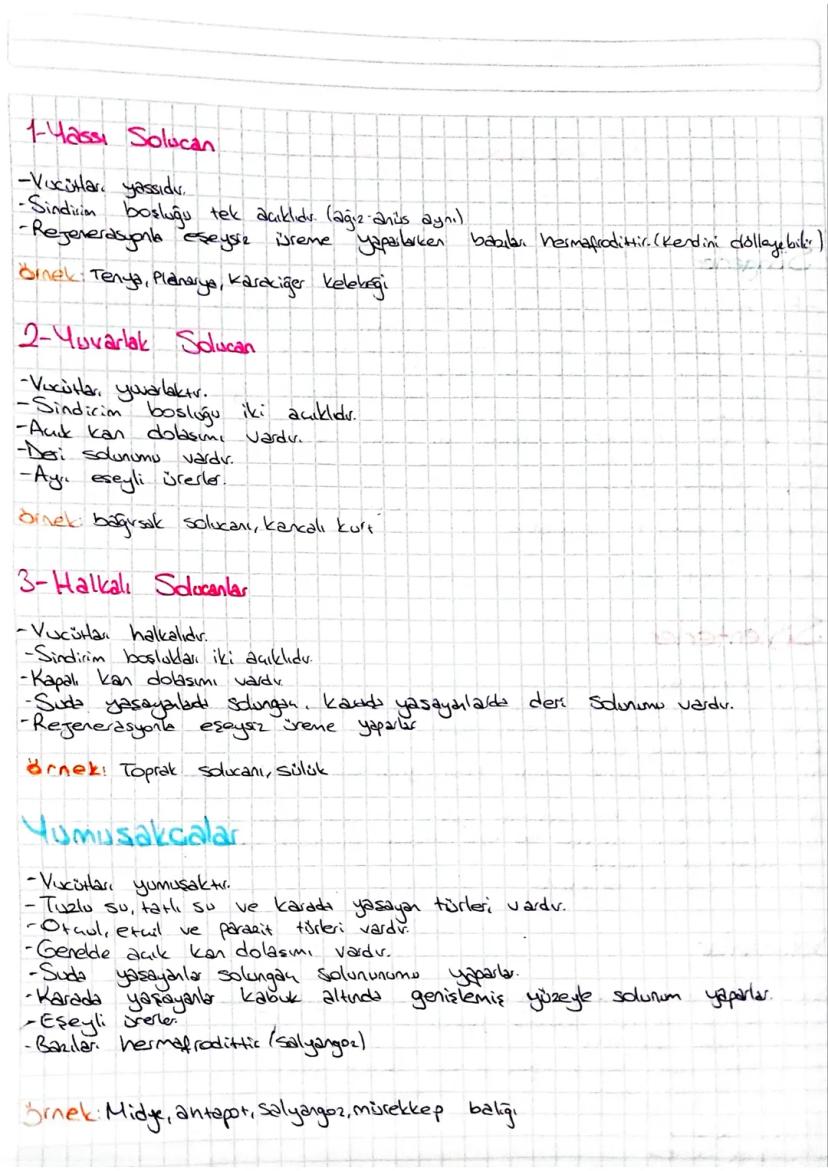 1-Yassı Solucan
-Vücutları yassıdır.
-Sindirim boşluğu tek açıklıdır (ağız-anüs aynı)
-Rejenerasyonla eşeysiz üreme yaparlarken bazıları hermafrodittir.(Kendini dölleyebilir)
Örnek: Tenya, Planarya, Karaciğer Kelebeği
2-Yuvarlak Solucan
-Vücutları yuvarlaktır.
-Sindirim boşluğu iki açıklıdır.
-Açık kan dolaşımı vardır.
-Deri solunumu vardır.
-Ayrı eşeyli ürerler.
Örnek: bağırsak solucanı, kancalı kurt
3-Halkalı Solucanlar
-Vücutları halkalıdır.
-Sindirim boşlukları iki açıklıdır.
-Kapalı kan dolaşımı vardır
-Suda yaşayanlarda solungaç, karada yaşayanlarda deri solunumu vardır.
-Rejenerasyonla eşeysiz üreme yaparlar
Örnek: Toprak solucanı, sülük
Yumuşakçalar
-Vücutları yumuşaktır.
-Tuzlu su, tatlı su ve karada yaşayan türleri vardır.
-Otçul, etçil ve parazit türleri vardır.
-Genelde açık kan dolaşımı vardır.
-Suda yaşayanlar solungaç solununumu yaparlar.
-Karada yaşayanlar kabuk altında genişlemiş yüzeyle solunum yaparlar.
-Eşeyli ürerler.
-Bazıları hermafrodittir (salyangoz)
Örnek: Midye, antapot, salyangoz, mürekkep balığı